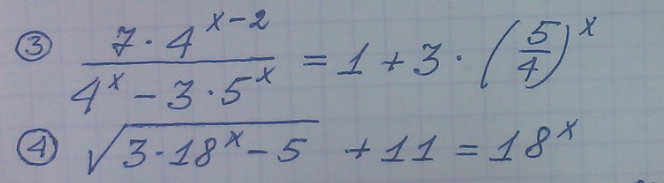 ③ \frac{7 \cdot 4^{x-2}}{4^x - 3 \cdot 5^x} = 1 + 3 \cdot \left(\frac{5}{4}\right)^x
④ \sqrt{3 \cdot 18^x - 5} + 11 = 18^x